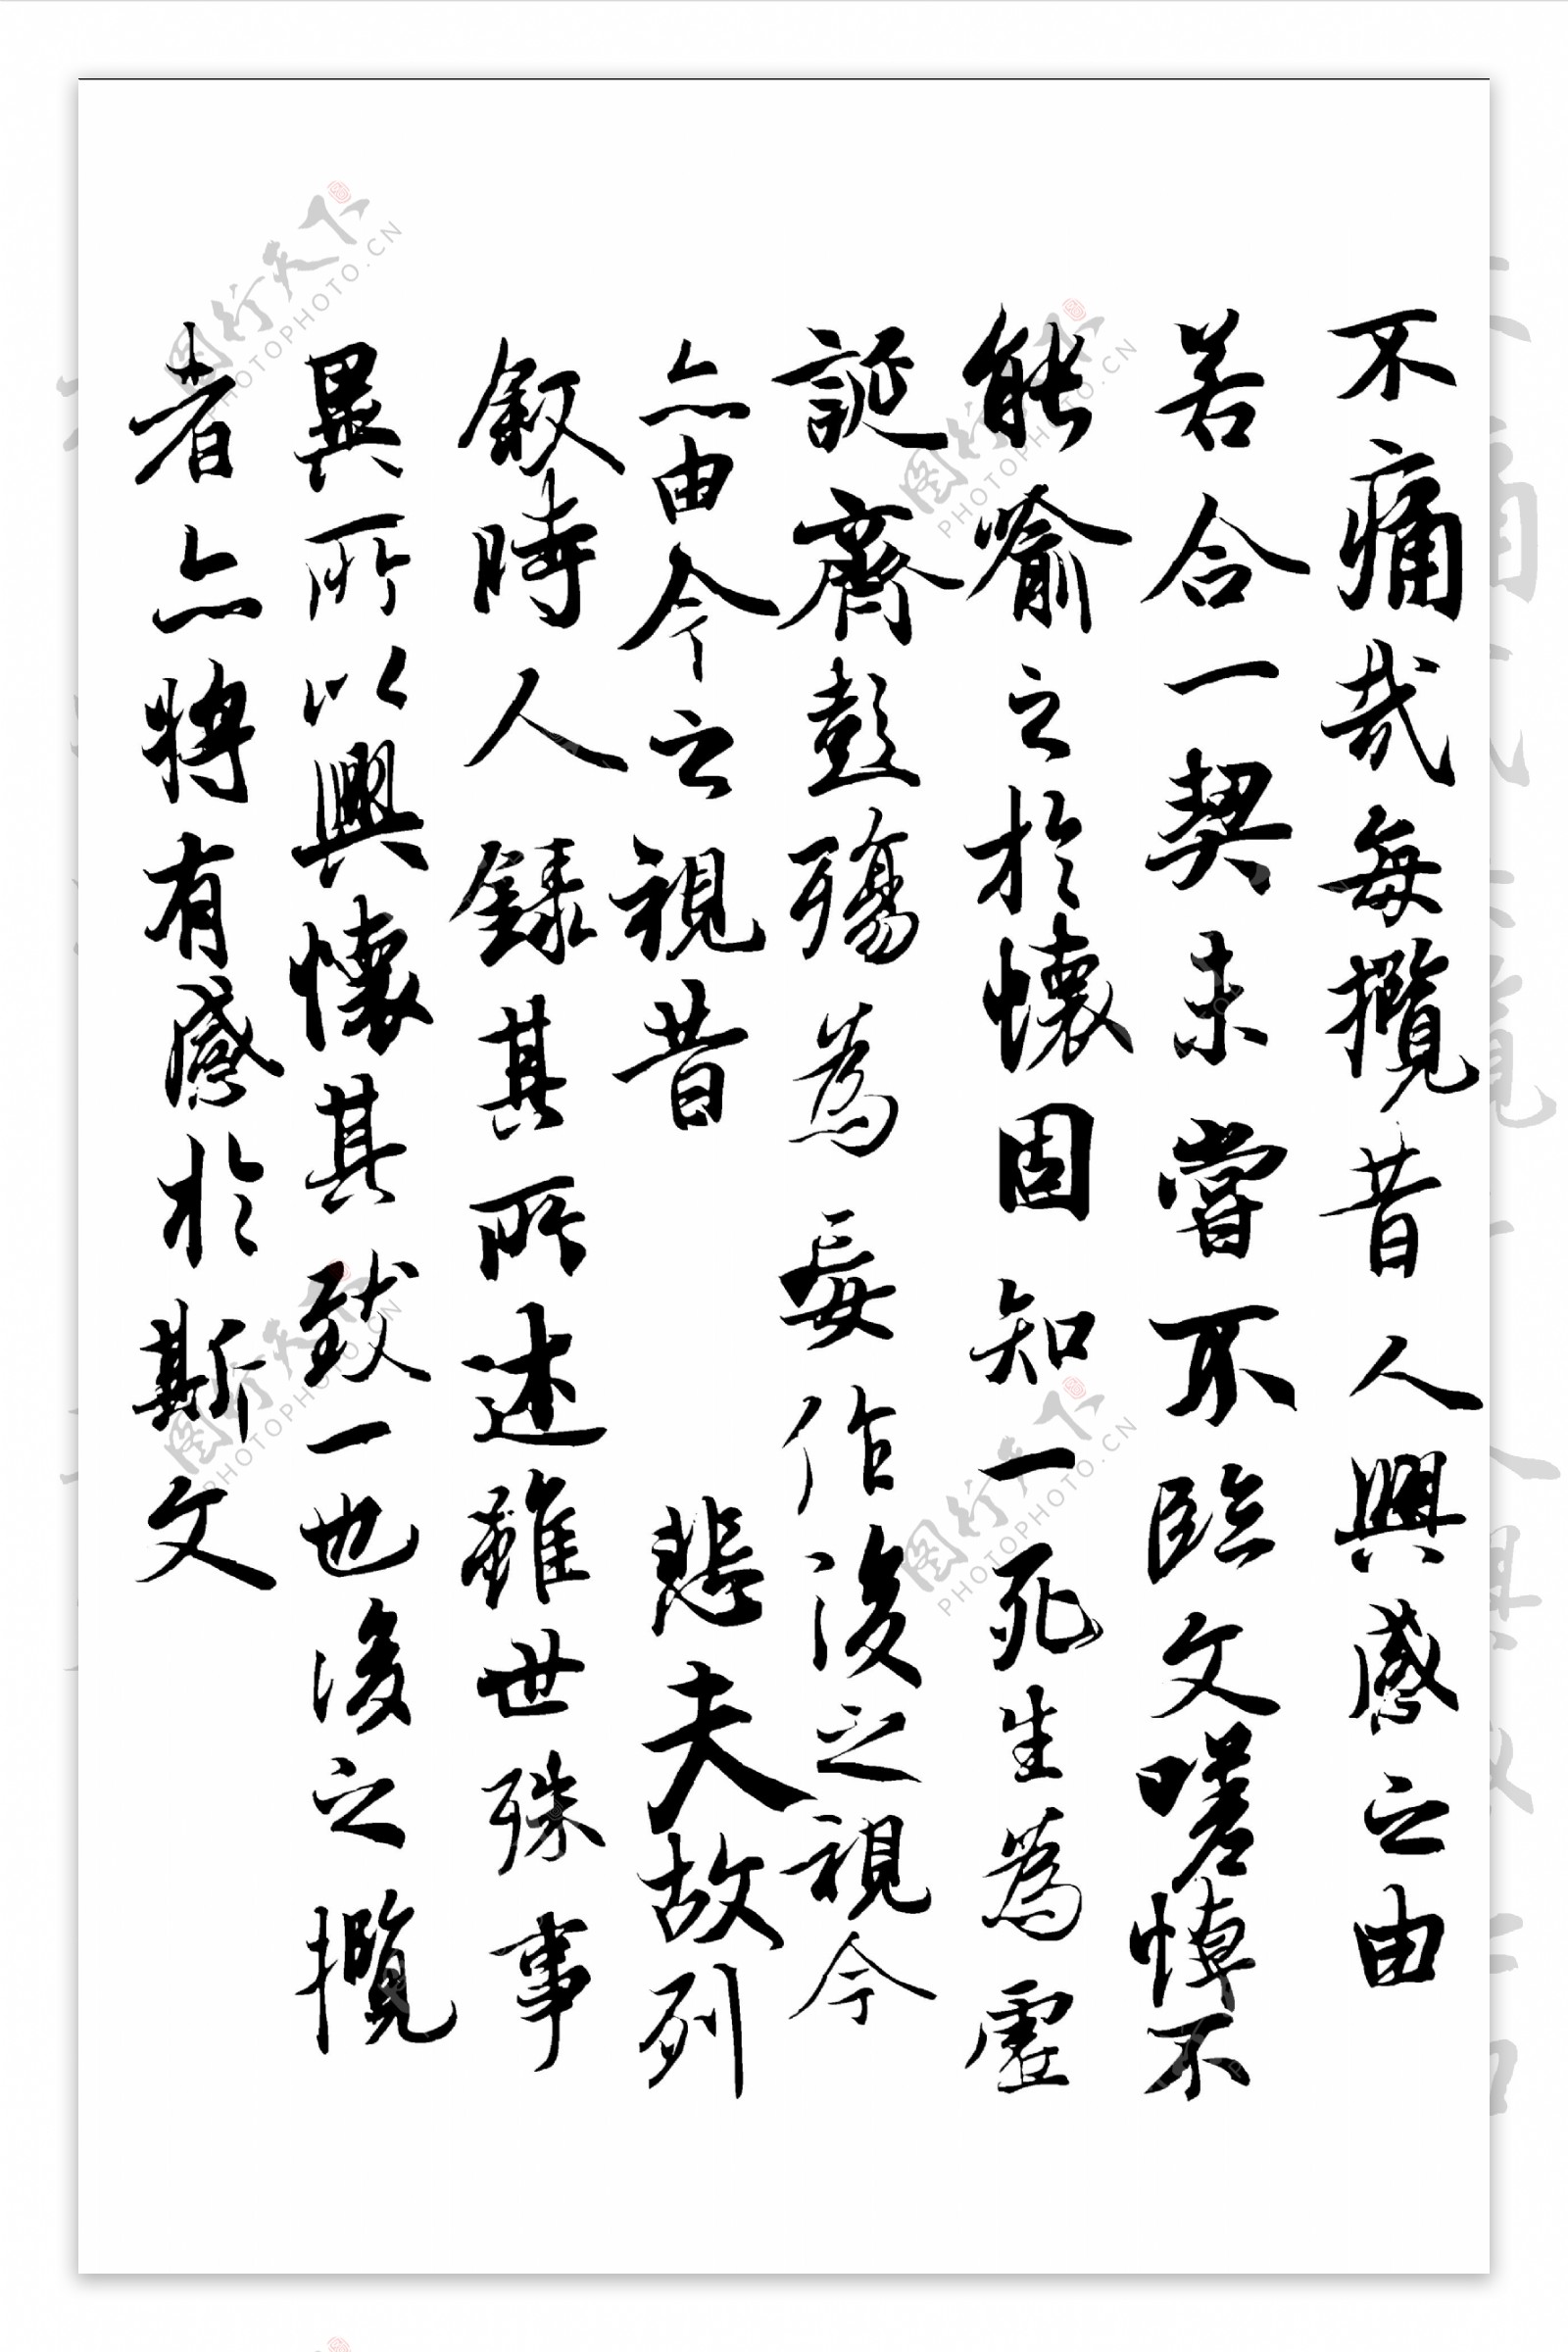 不痛哉每攬昔人興感之由
若合一契未嘗不臨文嗟悼不
能喻之於懷固知一死生為虛
誕齊彭殤為妄作後之視今
亦由今之視昔 悲夫故列
敘時人錄其所述雖世殊事
異所以興懷其致一也後之攬
者亦將有感於斯文
图行天下
PHOTO.CN
图行天下
PHOTO.CN
图行天下
PHOTO.CN
图行天下
PHOTO.CN